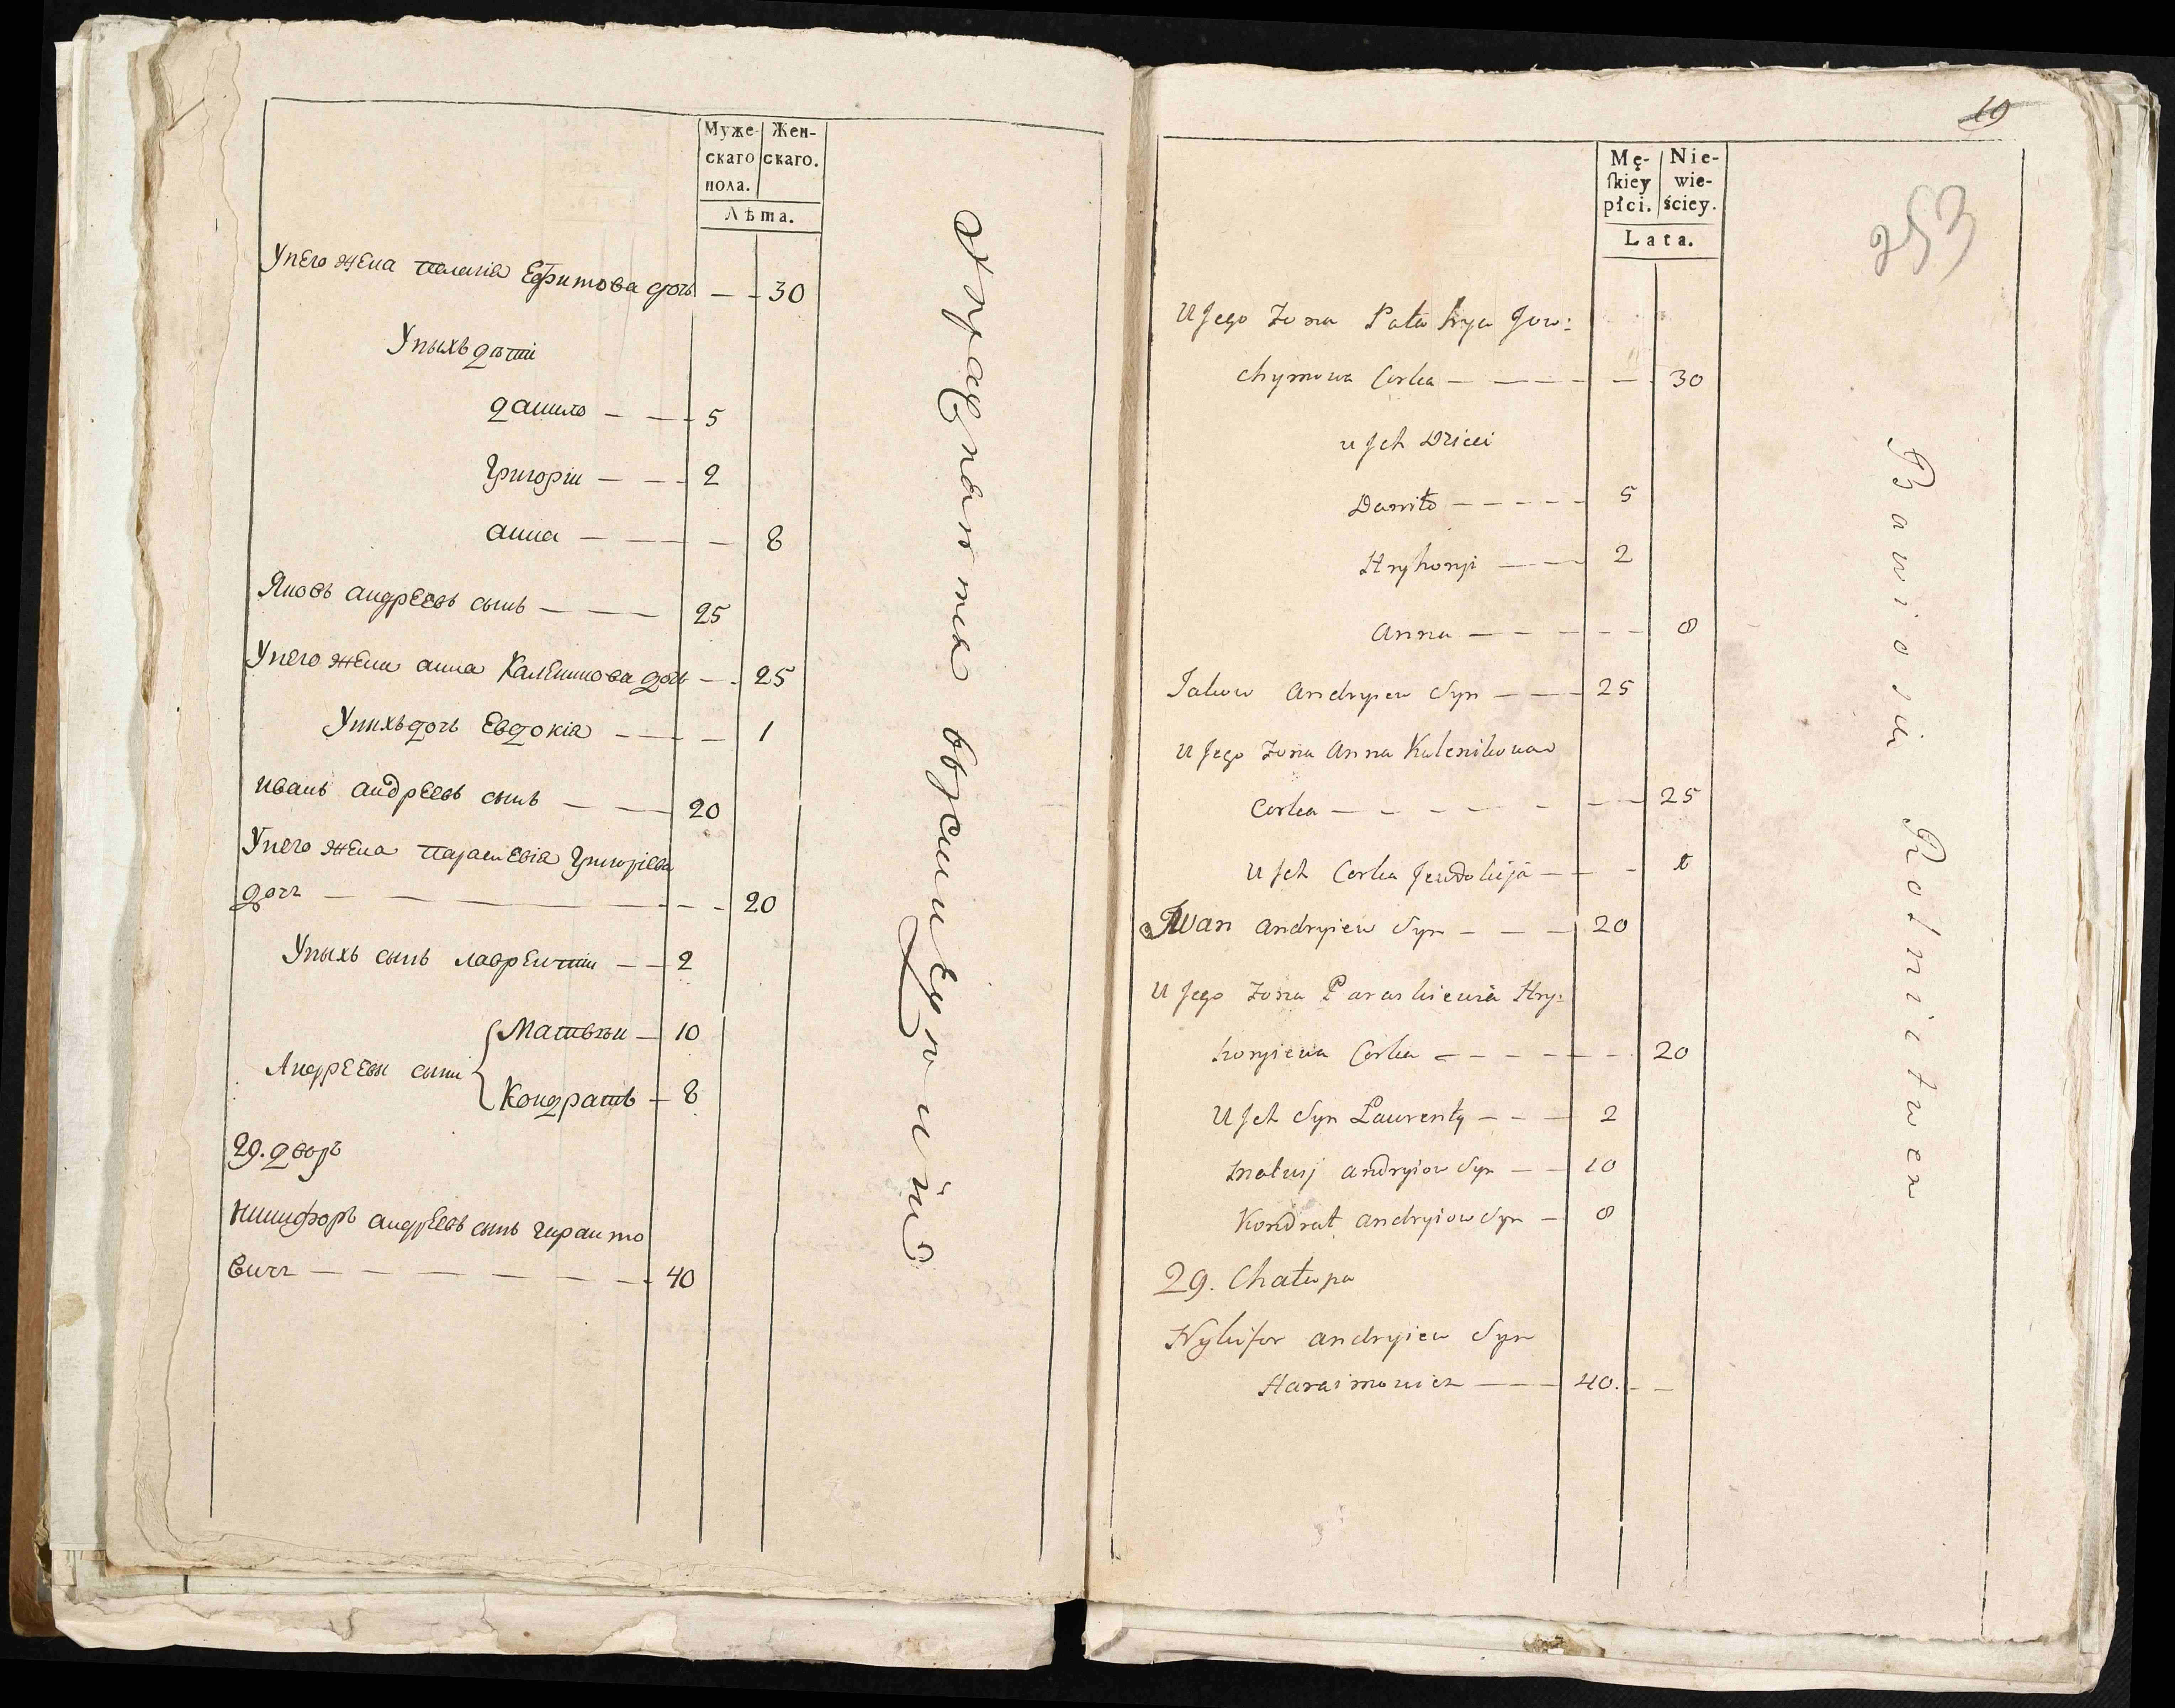 Муже- Жен-
скаго скаго.
пола.
Лѣта.
Унего жена Палагія Ефимова дочь — — 30
Унихъ дѣти
Данило — — 5
Григорій — — 2
Анна — — — 8
Яковъ андрѣевъ сынъ — — — 25
Унего жена анна Каленикова дочь — — 25
Унихъ дочь Евдокія — — — 1
иванъ андрѣевъ сынъ — — 20
Унего жена Параскевія Григоріева
дочь — — — — — — 20
Унихъ сынъ лаврентій — — 2
Матвѣй — 10
Андрѣевы сыни
Кондратъ — 8
29. дворъ
Никифоръ андрѣевъ сынъ гарашмо
вичъ — — — — — — 40
19
253
Mę- Nie-
ſkiey wie-
płci. ściey.
Lata.
U Jego Zona Pałahya Jow:
chymowa Corka — — — — 30
u Jch Dzieci
Daniło — — — — — 5
Hryhoryi — — — 2
Anna — — — — — 8
Jakow Andryiew Syn — — — 25
U Jego Zona Anna Kalenikowa
Corka — — — — — — — 25
U Jch Corka Jewdokija — — — 1
Iwan Andryiew Syn — — — 20
U Jego Zona Paraskiewia Hry:
horyiewa Corka — — — — — 20
U Jch Syn Laurenty — — — 2
Matwij Andryiow Syn — — 10
Kondrat Andryiow Syn — 8
29. Chałupa
Nykifor Andryiew Syn
Haraimowicz — — — 40. — —
Rotnictwen